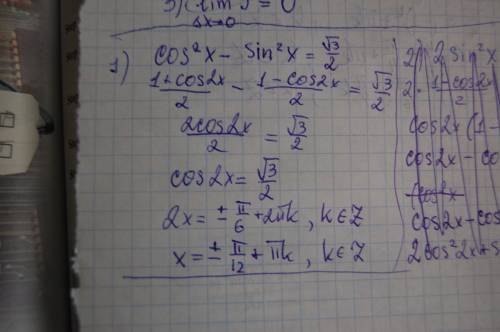 3) lim = 0
Δx→0
1) cos²x - sin²x = √3/2
(1+cos2x)/2 - (1-cos2x)/2 = √3/2
2cos2x/2 = √3/2
cos2x = √3/2
2x = ± π/6 + 2πk, k∈Z
x = ± π/12 + πk, k∈Z
2) 2 sin²x
2 · (1-cos2x)/2
cos2x (1-
cos2x - co
cos2x
cos2x - cos
2cos²2x+3